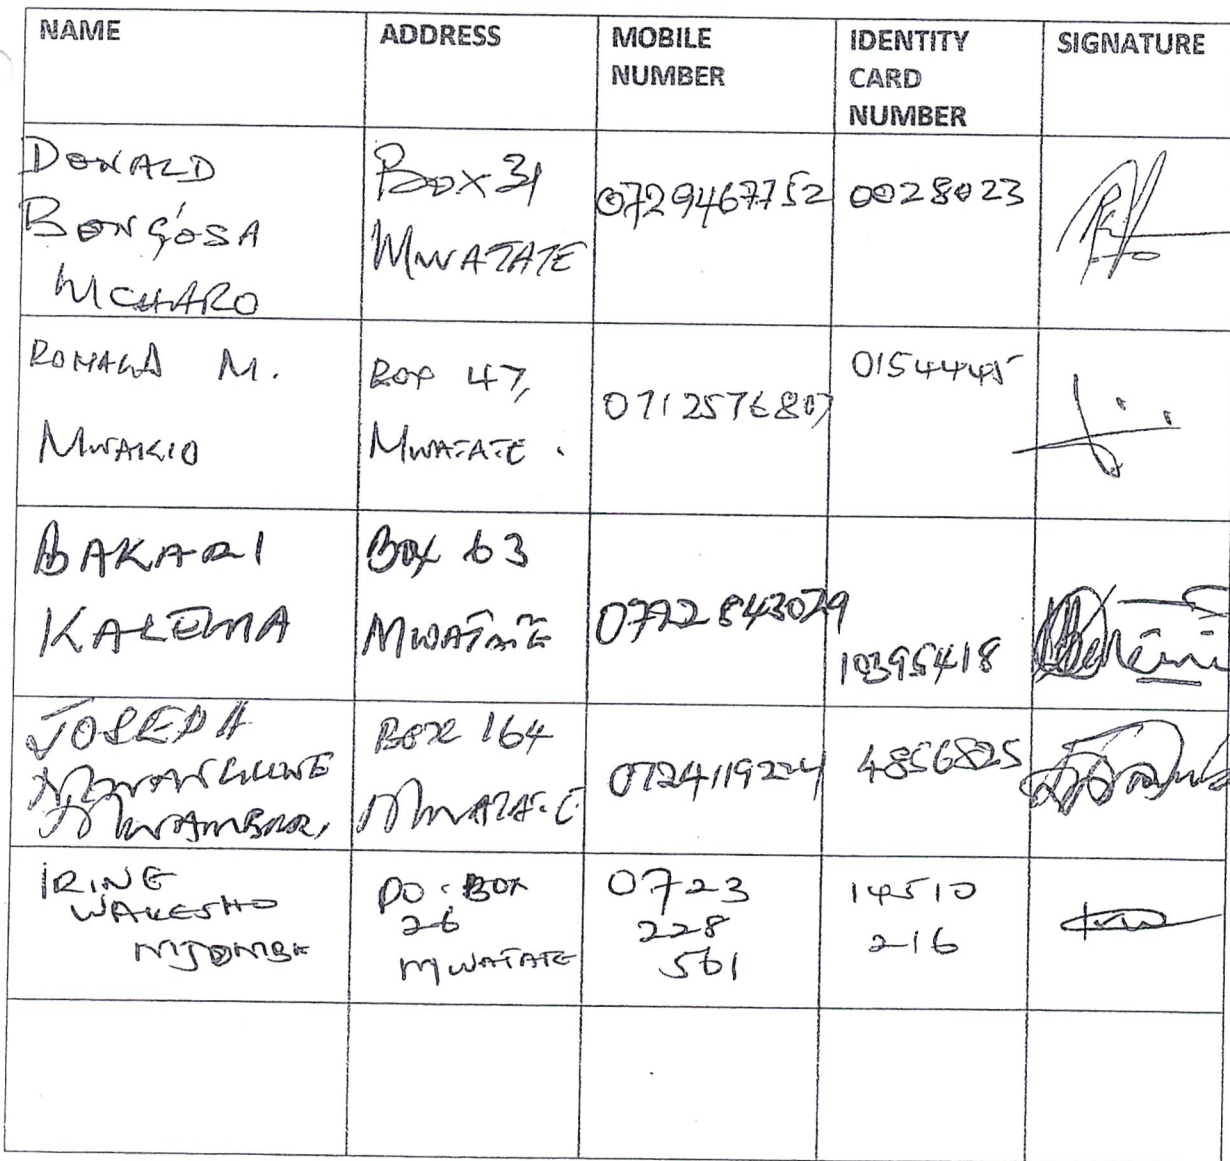 NAME ADDRESS MOBILE NUMBER IDENTITY CARD NUMBER SIGNATURE
DONALD BONG'OSA MCHARO Box 31 MWATATE 0729467752 0028023
RONALD M. MWAKIO BOX 47, MWATATE. 0712576807 0154445
BAKARI KALEMA BOX 63 MWATATE 0722843029 10395418
JOSEPH BOX 164 MWATATE 0724119224 4856825
IRINE WAKESHO MJOMBE PO. BOX 26 MWATATE 0723 228 561 14510 216